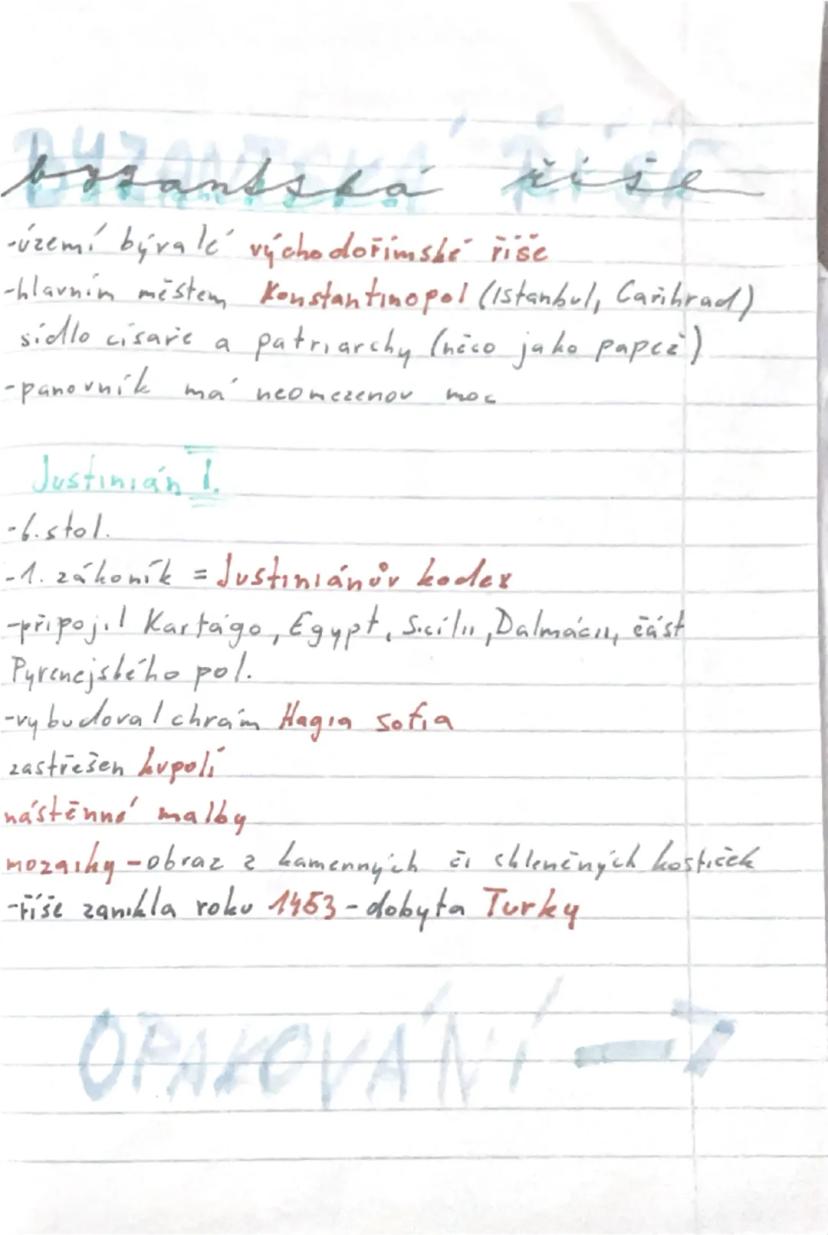 byzantská říše
-území bývalé východořímské říše
-hlavním městem Konstantinopol (Istanbul, Cařihrad)
sídlo císaře a patriarchy (něco jako papež)
-panovník má neomezenou moc
Justinián I.
-6. stol.
-1. zákoník = Justiniánův kodex
-připojil Kartágo, Egypt, Sicílii, Dalmácii, část
Pyrenejského pol.
-vybudoval chrám Hagia Sofia
zastřešen kupolí
nástěnné malby
mozaiky - obraz z kamenných či skleněných kostiček
-říše zanikla roku 1453 - dobyta Turky
OPAKOVÁNÍ →